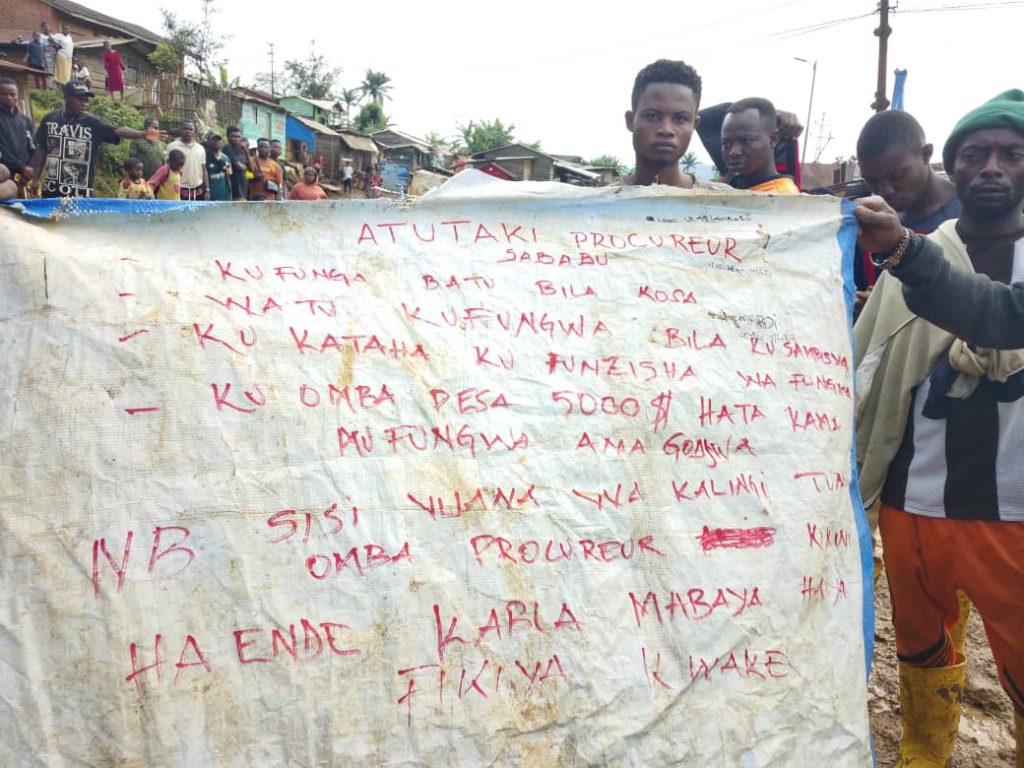 TRAVIS
SC OTT
ATUTAKI PROCUREUR
SABABU
- KU FUNGA BATU BILA KOSA
- WATU KUFUNGWA BILA KUSAMBISWA
- KU KATAHA KU FUNZISHA WA FUNGWA
- KU OMBA PESA 5000 $ HATA KAMA
MUFUNGWA AMA
NB SISI VIJANA WA KALINGI TUNA
OMBA PROCUREUR
HA ENDE KABLA MABAYA HAIJA
FIKIYA KWAKE